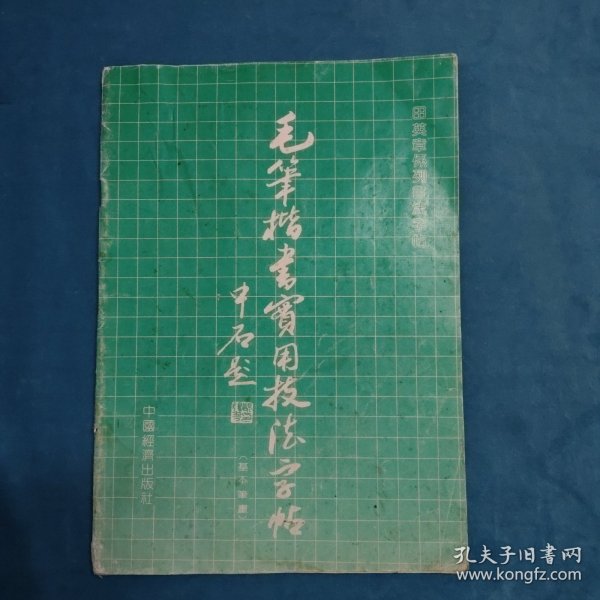 田英章系列書法字帖
毛筆楷書實用技法字帖
（基本筆畫）
中石題
中國經濟出版社
孔夫子旧书网
www.kongfz.com